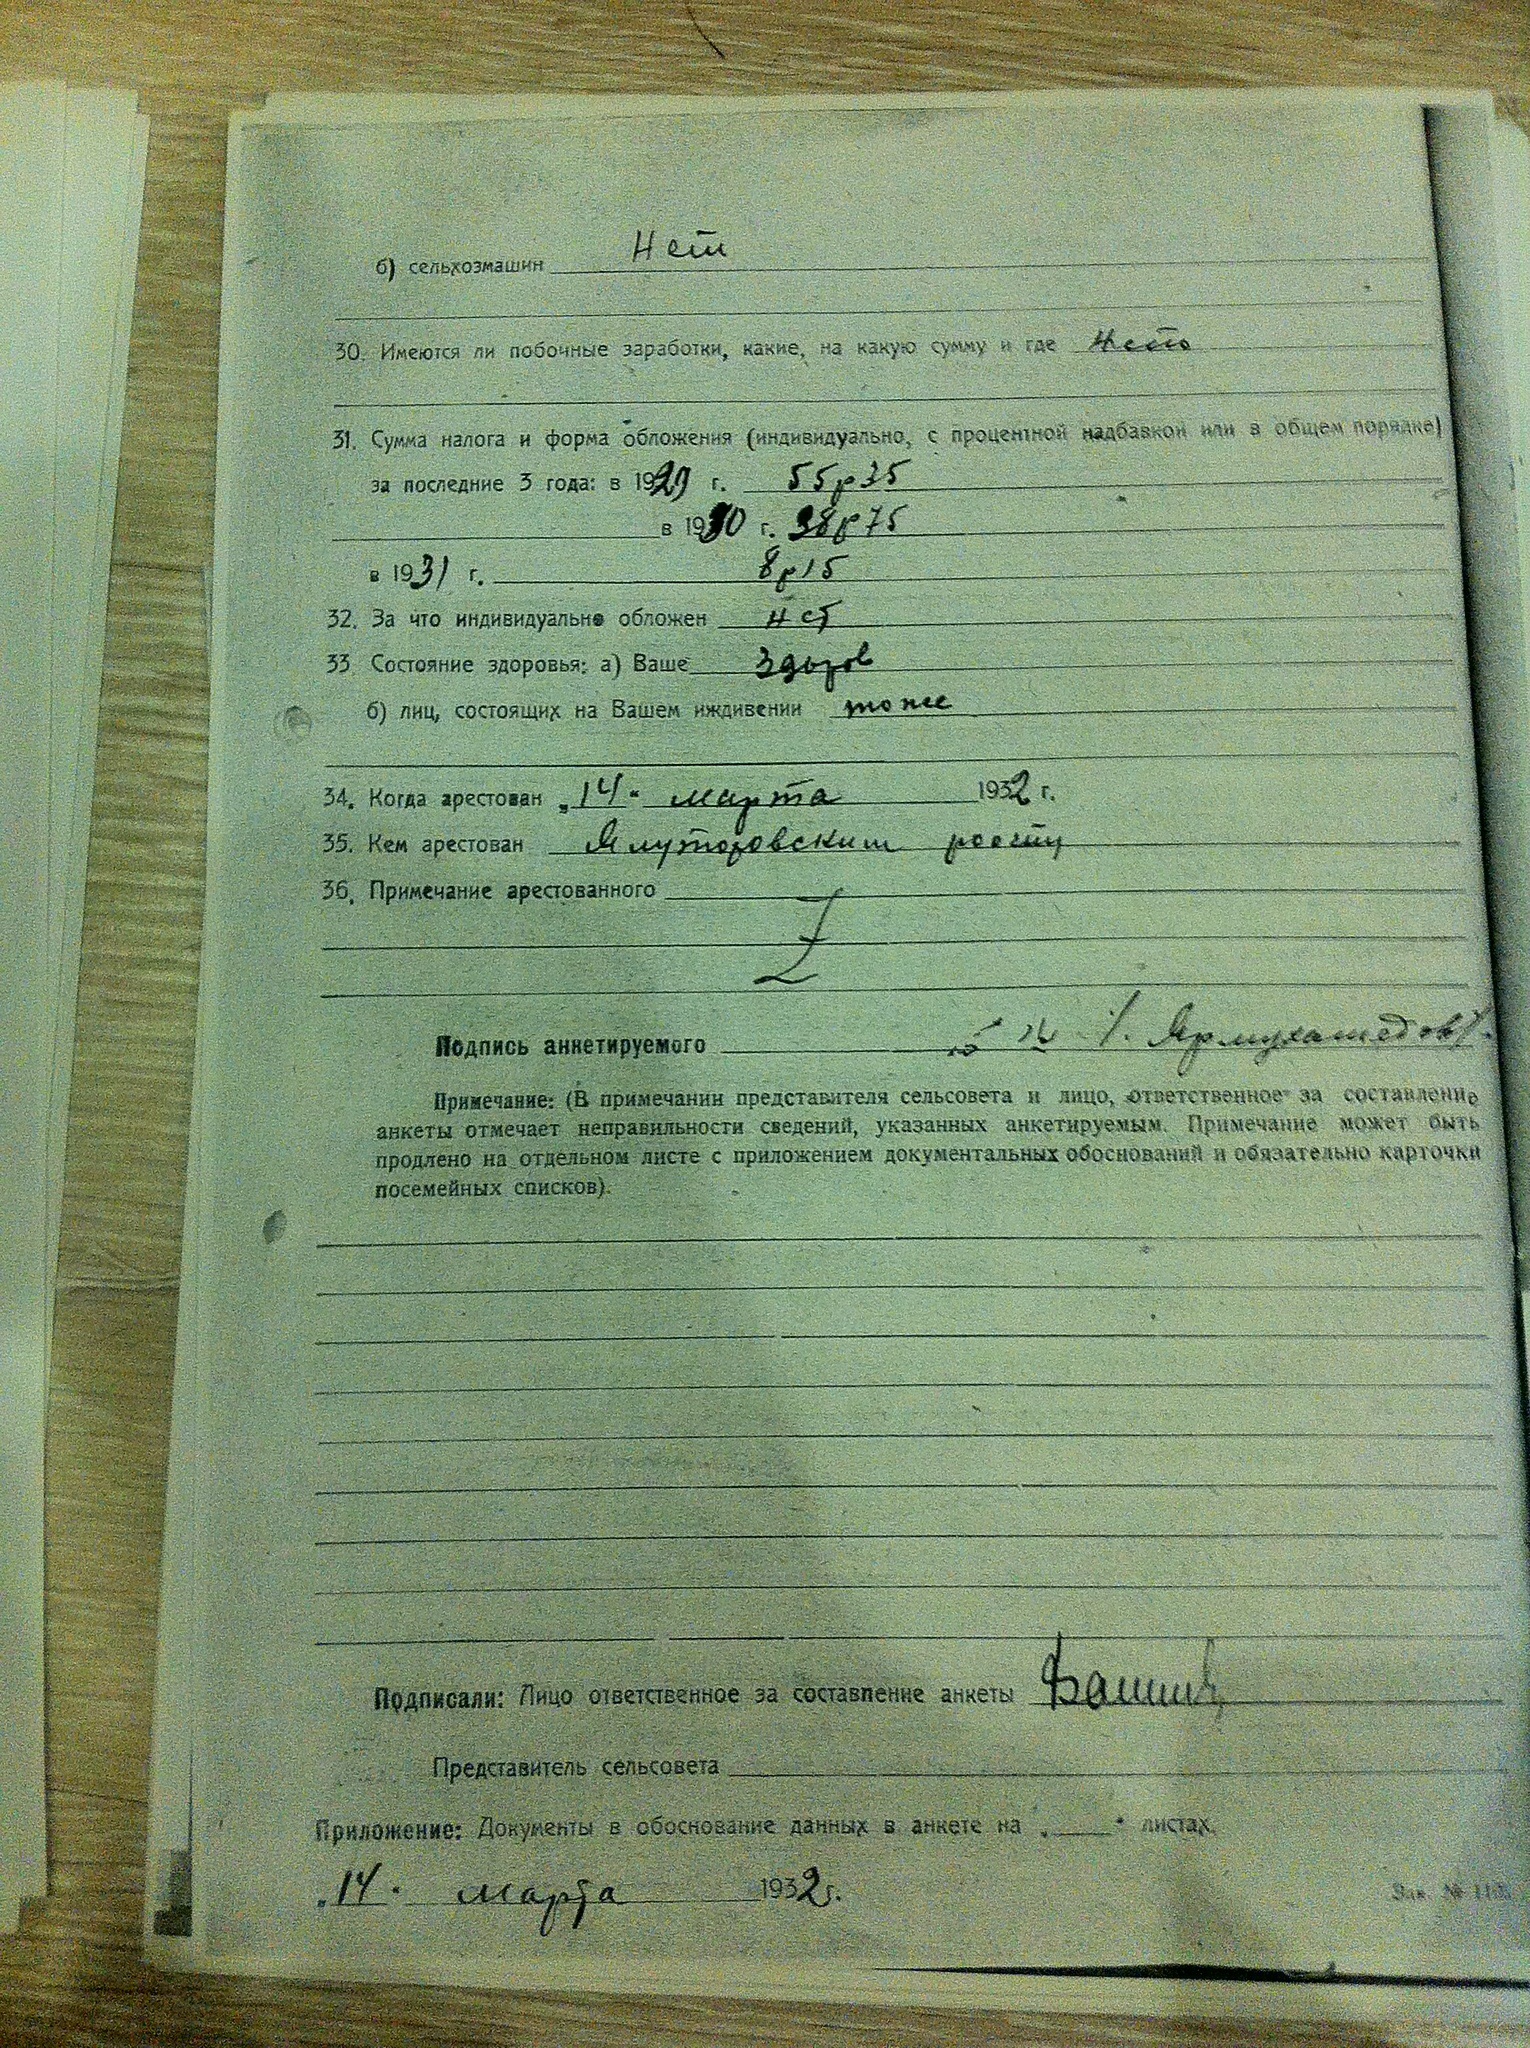 б) сельхозмашин Нет
30. Имеются ли побочные заработки, какие, на какую сумму и где нет
31. Сумма налога и форма обложения (индивидуально, с процентной надбавкой или в общем порядке)
за последние 3 года: в 1929 г. 55р35
в 1930 г. 38р75
в 1931 г. 8р15
32. За что индивидуально обложен нет
33. Состояние здоровья: а) Ваше Здоров
б) лиц, состоящих на Вашем иждивении тоже
34. Когда арестован „14“ марта 1932 г.
35. Кем арестован Ялуторовским
36. Примечание арестованного
Подпись анкетируемого /. Ярмухамедов/.
Примечание: (В примечании представителя сельсовета и лицо, ответственное за составление
анкеты отмечает неправильности сведений, указанных анкетируемым. Примечание может быть
продлено на отдельном листе с приложением документальных обоснований и обязательно карточки
посемейных списков).
Подписали: Лицо ответственное за составление анкеты
Представитель сельсовета
Приложение: Документы в обоснование данных в анкете на „ “ листах.
„14“ марта 1932 г.
Зак. №